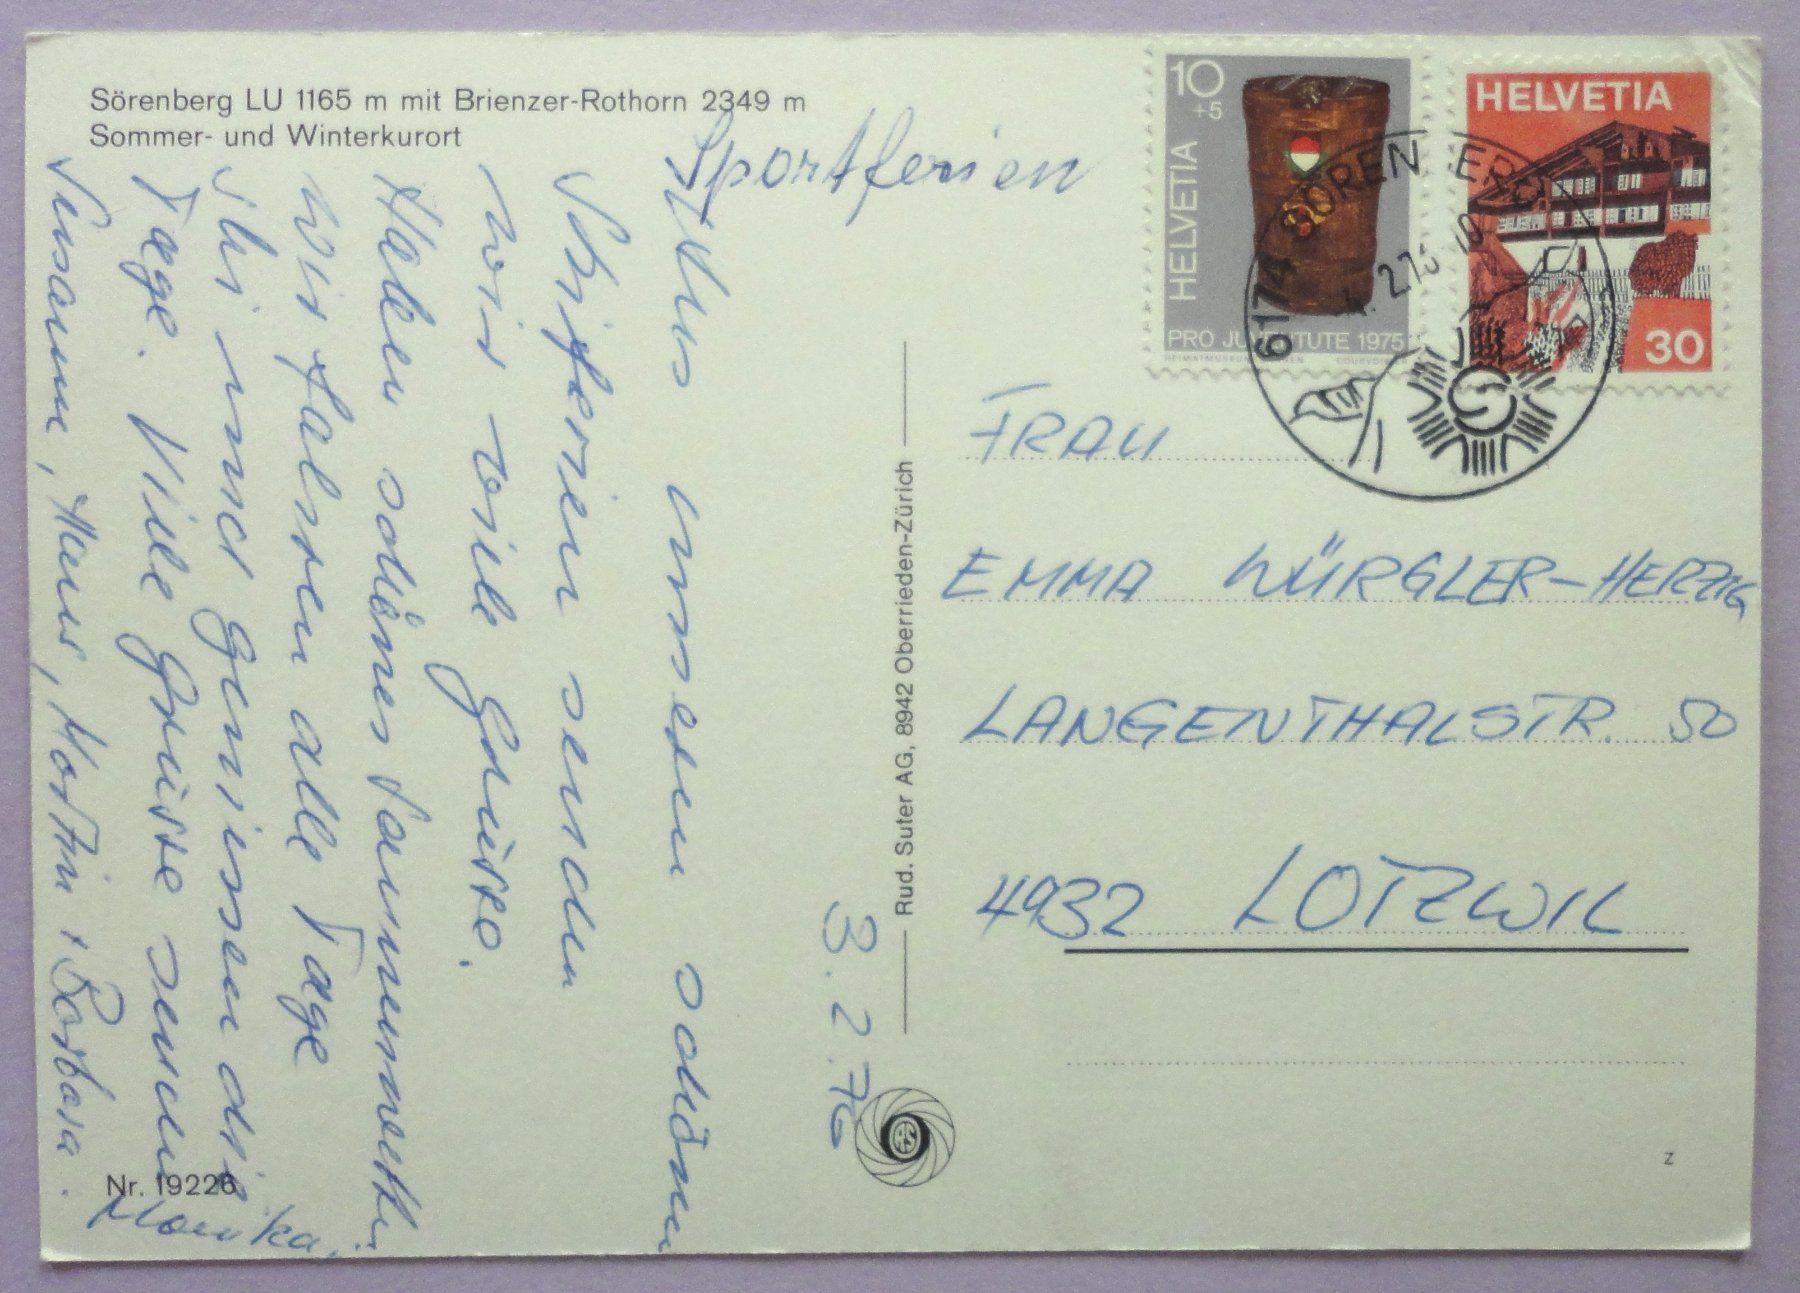 Sörenberg LU 1165 m mit Brienzer-Rothorn 2349 m
Sommer- und Winterkurort
Sportferien
Aus unseren schönen
Skiferien senden
wir viele Grüsse.
Haben schönes Sonnenwetter
Wir fahren alle Tage
Ski und geniessen die
Tage. Viele Grüsse senden
Susann, Hans, Martin + Barbara.
Monika.
Nr. 19226
3.2.76
Rud. Suter AG, 8942 Oberrieden-Zürich
10
+5
HELVETIA
PRO JUVENTUTE 1975
HELVETIA
30
6174 SÖRENBERG
FRAU
EMMA WÜRGLER-HERZIG
LANGENTHALSTR. 50
4932 LOTZWIL
Z